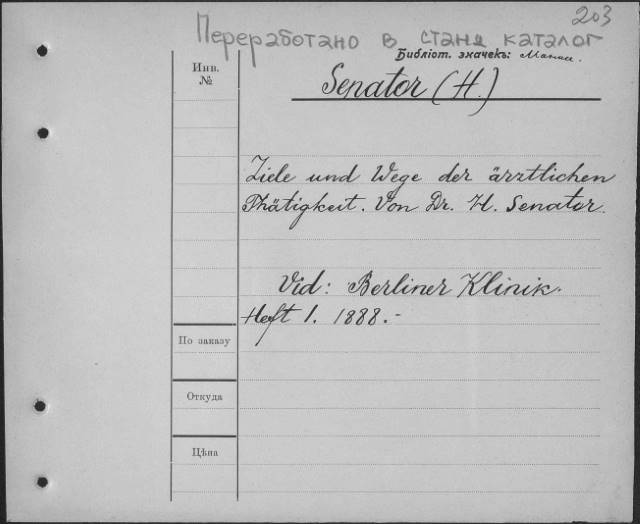 203
Переработано в станд каталог
Библіот. значекъ:
Инв.
№
Senator (H.)
Ziele und Wege der ärztlichen
Thätigkeit. Von Dr. H. Senator.
Vid: Berliner Klinik.
Heft 1. 1888.-
По заказу
Откуда
Цѣна